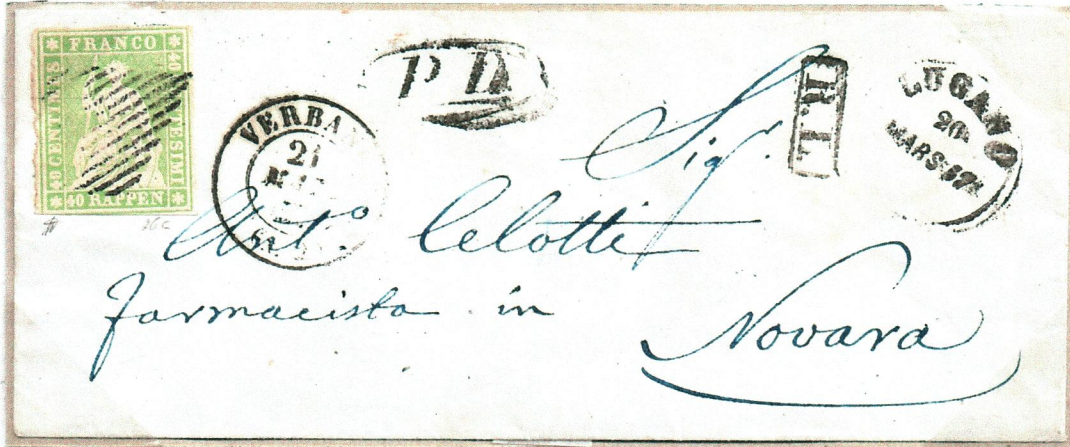 FRANCO
40 CENTIMES
40 CENTESIMI
40 RAPPEN
PD
VERBA
21
R.L.
LUGANO
20
MARS
Sigr.
Anto. Celotti
farmacista in
Novara